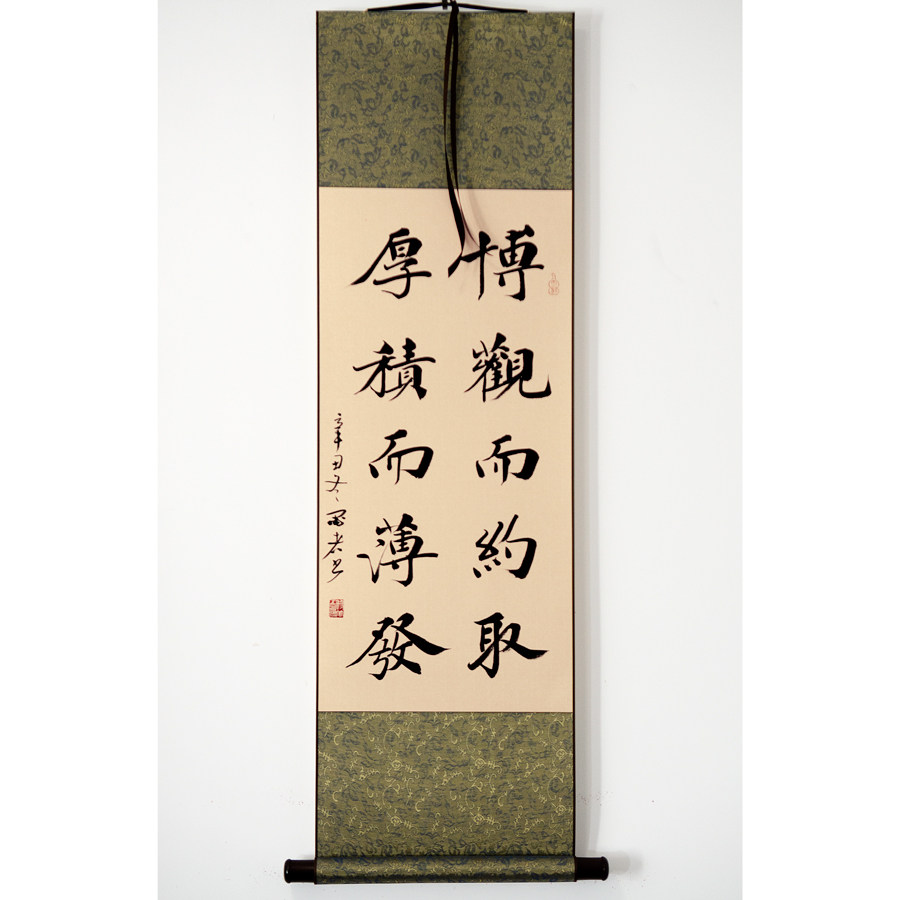 博觀而約取
厚積而薄發
辛丑冬